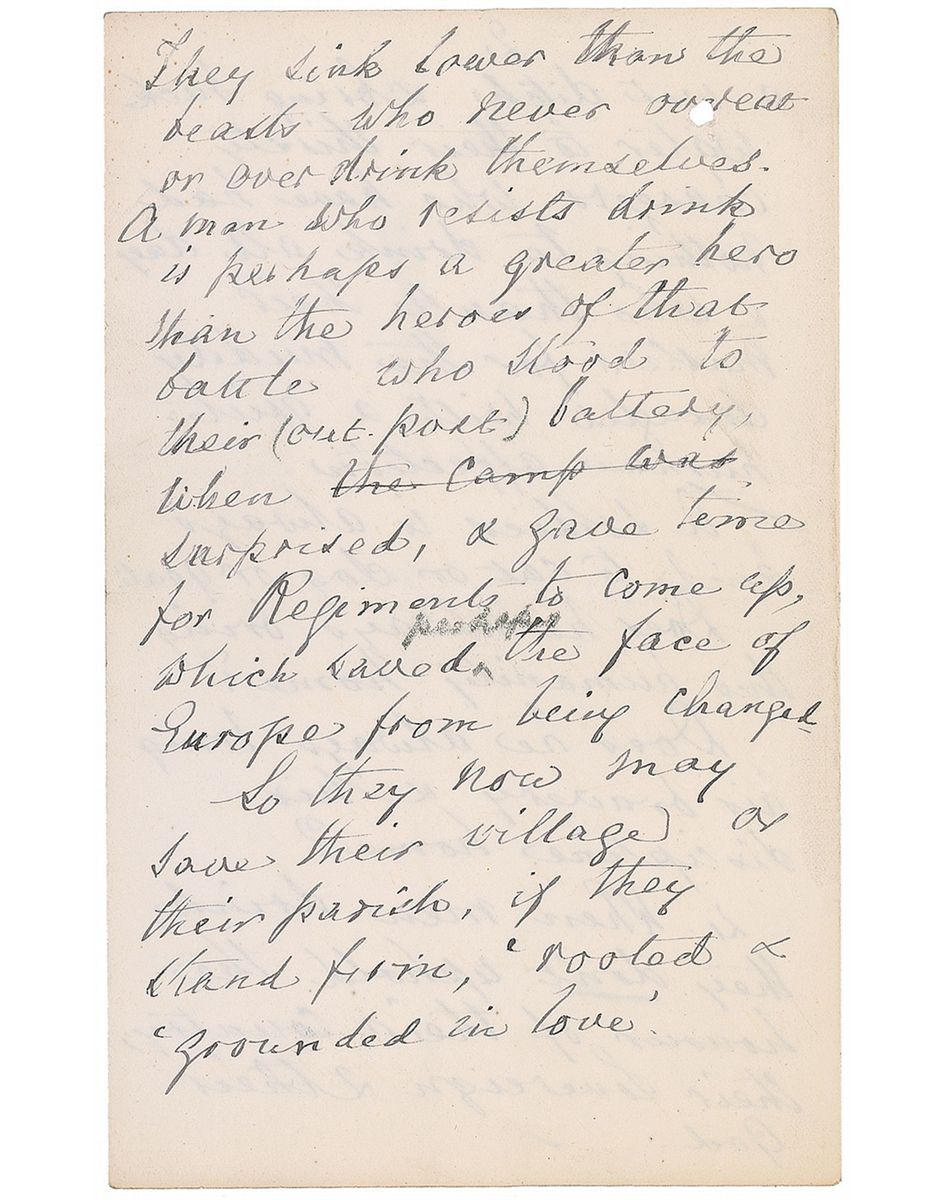 They sink lower than the
beasts who never overeat
or over drink themselves.
A man who resists drink
is perhaps a greater hero
than the heroes of that
battle who stood to
their (out-post) battery,
when the camp was
surprised, & gave time
for Regiments to come up,
perhaps
which saved ‸ the face of
Europe from being changed
So they now may
save their village or
their parish, if they
stand firm, ‘rooted &
‘grounded in love’.